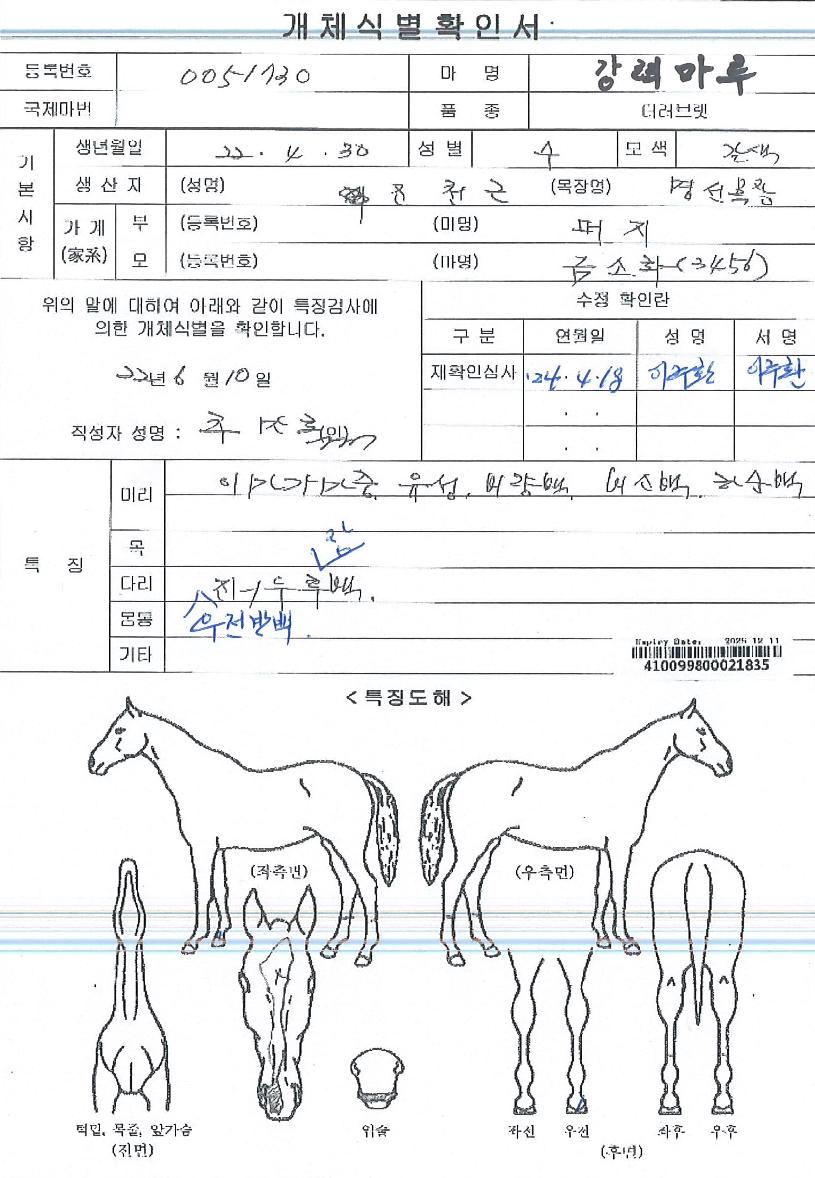 개체식별확인서
등록번호 0051730 마 명 강력마루
국제마번 품 종 더러브렛
기본사항
생년월일 22. 4. 30 성별 수 모색 갈색
생산자 (성명) (목장명) 명선목장
가계 (家系) 부 (등록번호) (마명) 머지
모 (등록번호) (마명) 금소화(3456)
위의 말에 대하여 아래와 같이 특징검사에
의한 개체식별을 확인합니다.
22년 6월 10일
작성자 성명 : (인)
수정 확인란
구분 연월일 성명 서명
재확인심사 '24. 4. 18 이주환 이주환
. .
. .
특 징
머리 유성, 비량백, 하순백
목
다리
몸통 우전반백.
기타
Expiry Date: 2025-12-11
410099800021835
< 특징도해 >
(좌측면) (우측면)
턱밑, 목줄, 앞가슴 위술 좌전 우전 좌후 우후
(전면) (후면)